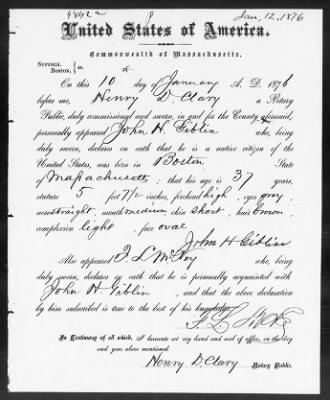 48422
Jan. 12. 1876
United States of America.
Commonwealth of Massachusetts.
SUFFOLK,
BOSTON, } ss.
On this 10 day of January A. D. 1876
before me, Henry D. Clary a Notary
Public, duly commissioned and sworn, in and for the County aforesaid,
personally appeared John H. Giblin who, being
duly sworn, declares on oath that he is a native citizen of the
United States, was born in Boston State
of Massachusetts; that his age is 37 years,
stature 5 feet 7 1/2 inches, forehead high, eyes grey,
nose straight, mouth medium, chin short, hair brown,
complexion light, face oval
John H Giblin
Also appeared F. L. McKoy who, being
duly sworn, declares on oath that he is personally acquainted with
John H Giblin, and that the above declaration
by him subscribed is true to the best of his knowledge.
In Testimony of all which, I hereunto set my hand and seal of office, on the day
and year above mentioned.
Henry D. Clary Notary Public.